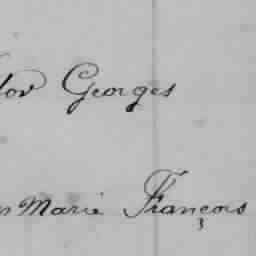 Georges
Marie François